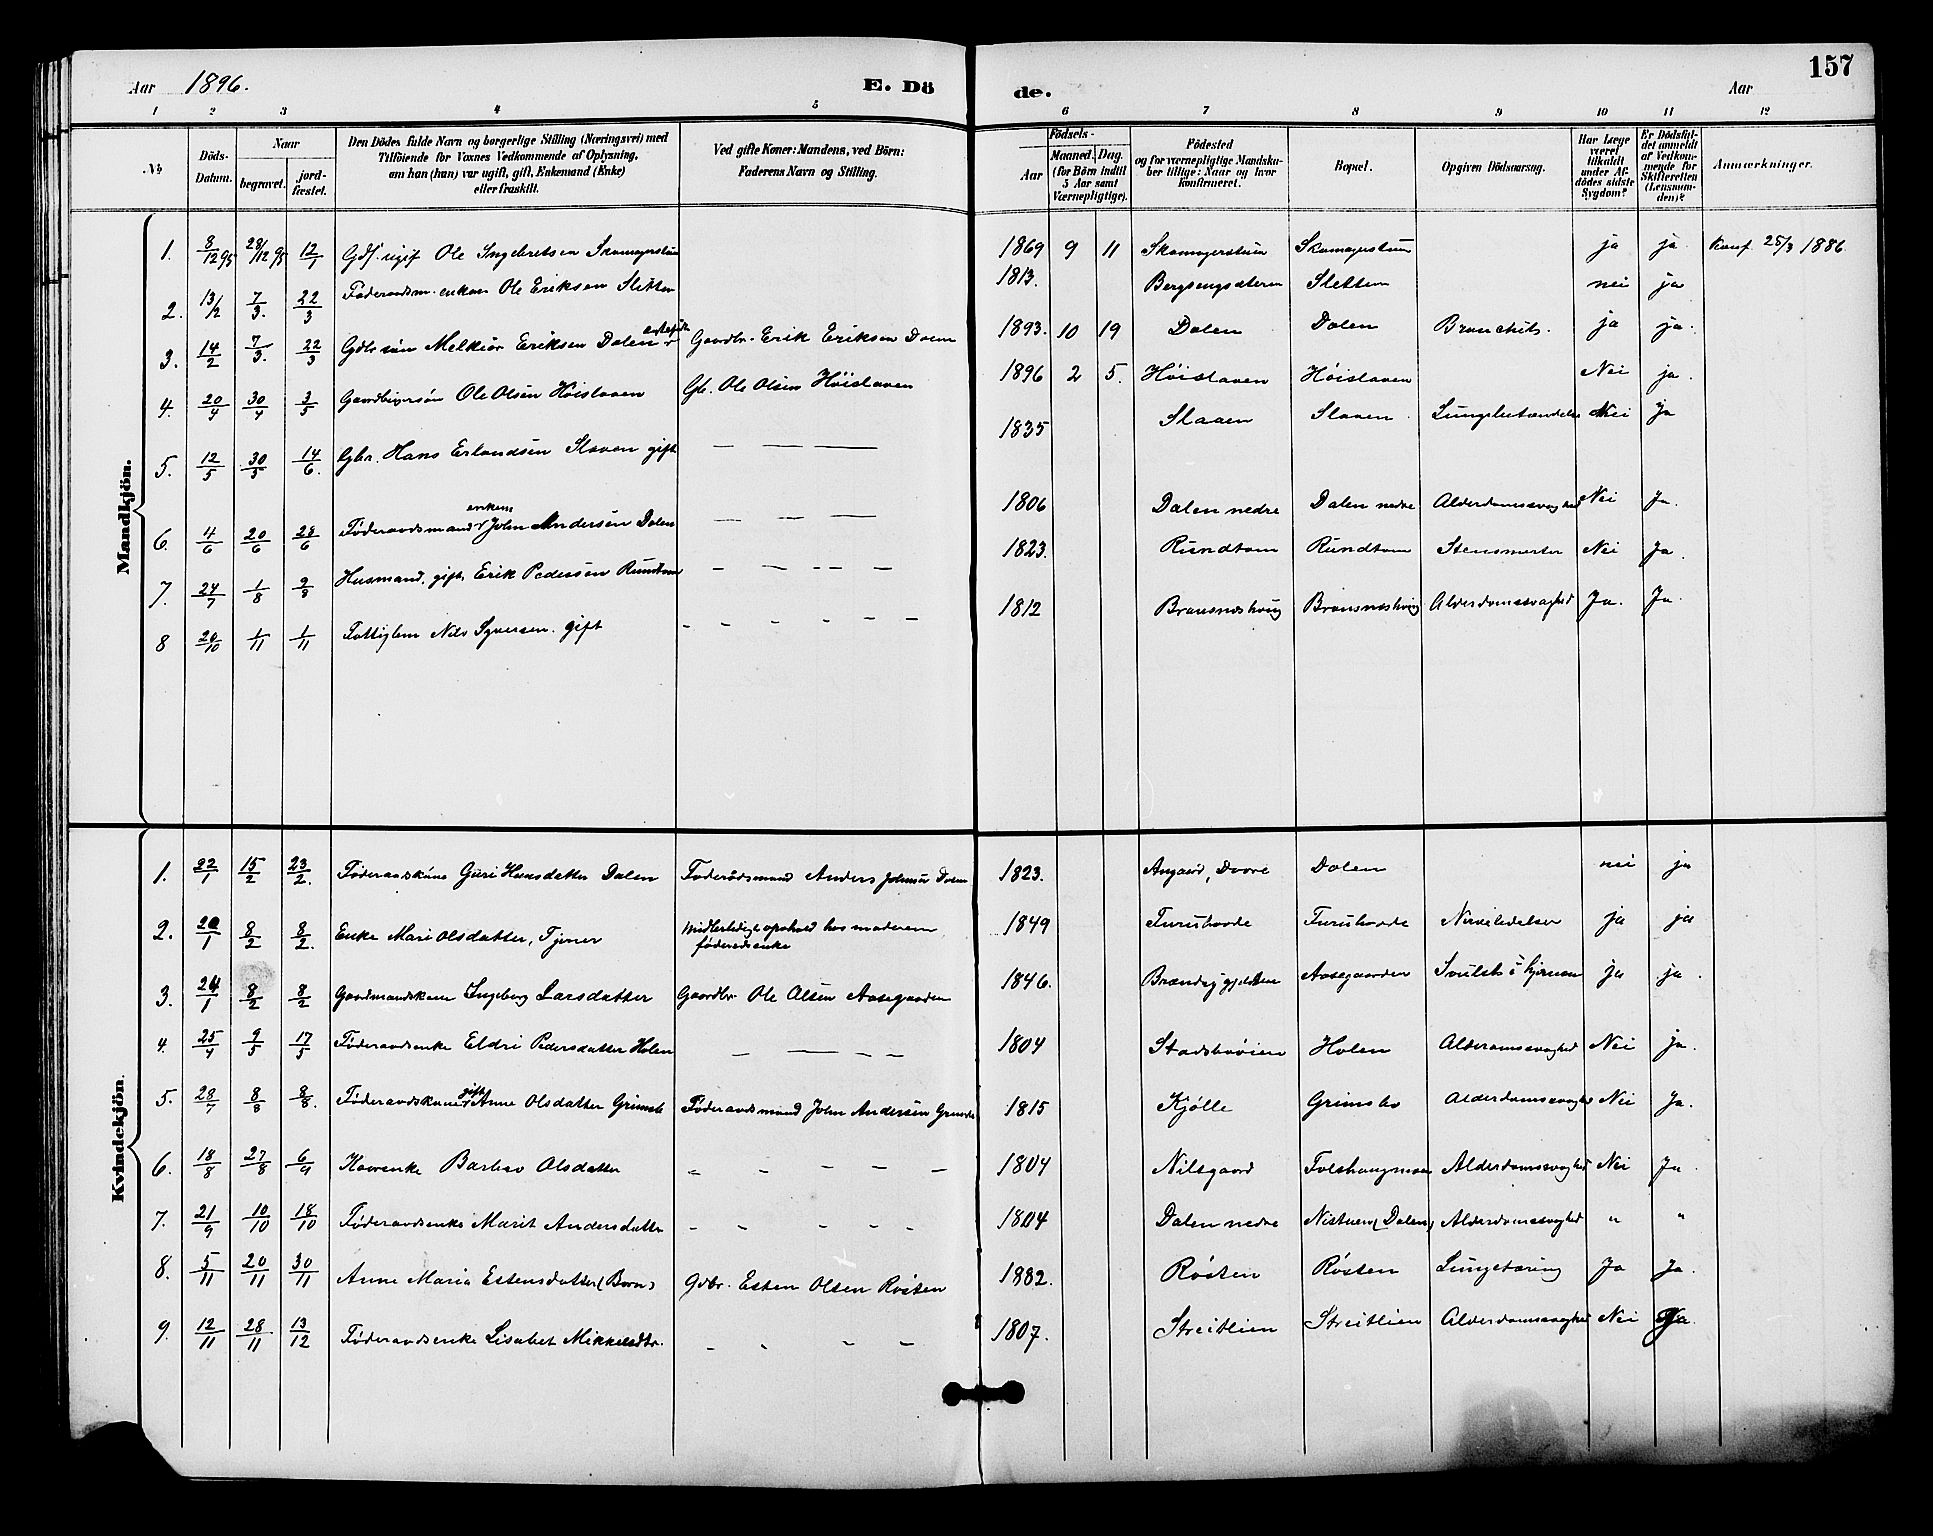 157
Aar 1896. E. Dö de. Aar
1 2 3 4 5 6 7 8 9 10 11 12
№ Döds-Datum. Naar begravet. jord-fæstet. Den Dödes fulde Navn og borgerlige Stilling (Næringsvei) med Tilföiende for Voxnes Vedkommende af Oplysning, om han (hun) var ugift, gift, Enkemand (Enke) eller fraskilt. Ved gifte Koner: Mandens, ved Börn: Faderens Navn og Stilling. Födsels- Aar Maaned. Dag. (for Börn indtil 5 Aar samt Værnepligtige). Födested og for værnepligtige Mandskaber tillige: Naar og hvor konfirmeret. Bopæl. Opgiven Dödsaarsag. Har Læge været tilkaldt under Afdödes sidste Sygdom? Er Dödsfaldet anmeldt af Vedkommende for Skifteretten (Lensmanden)? Anmærkninger.
Mandkjön.
1. 8/12 95 28/12 95 12/1 Ole Ingebretsen 1869 9 11 ja ja konf. 25/3 1886
2. 13/2 7/3. 22/3 Föderaadsm. enkem. Ole Eriksen Sletten 1813. Bergsengsæteren Sletten nei ja
3. 14/2 7/3. 22/3 Gdbr søn Melkior Eriksen Dalen Gaardbr. Erik Eriksen Dalen 1893. 10 19 Dalen Dalen Bronchit. ja ja.
4. 20/4 30/4 3/5 Gaardbrugersøn Ole Olsen Høistaven Gb. Ole Olsen Høistaven 1896 2 5. Høistaven Høistaven Nei ja.
5. 12/5 30/5 14/6. Gbr. Hans Erlandsen Slaaen gift — — — 1835 Slaaen Slaaen. Lungebetændelse Nei Ja
6. 11/6 20/6 28/6 Føderaadsmand enkem John Andersen Dalen — — — 1806 Dalen nedre Dalen nedre Alderdomssvaghed Nei Ja.
7. 24/7 1/8 9/8 Husmand. gift. Erik Pedersen Rundtom — — — — 1823. Rundtom Rundtom Stensmerter Nei Ja.
8 20/10 1/11 1/11 Fattiglem Nils Syversen. gift — — — — — — 1812 Alderdomssvaghed Ja. Ja.
Kvindekjön.
1. 22/1 15/2 23/2. Føderaadskone Guri Hansdatter Dalen Føderådsmand Anders Johnsen Dalen 1823. Angaard, Dovre Dalen nei ja
2. 20/1 8/2 8/2. Enke Mari Olsdatter, Tjener Midlertidigt ophold hos moderen føderådsenke 1849 Furuhovde Furuhovde ja ja
3. 24/1 8/2 8/2 Gaardmandskone Ingeborg Larsdatter Gaardbr. Ole Olsen Aasegaarden 1846. Aasegaarden Svulst i hjernen ja ja.
4. 25/4 9/5 17/5 Føderaadsenke Eldri Pedersdatter Holen — — — — 1804 Holen Alderdomssvaghed Nei ja.
5. 28/7 8/8 8/8. Føderaadskone gift Anne Olsdatter Grimsbo Føderaadsmand John Andersen Grimsbo 1815 Kjølle Grimsbo Alderdomssvaghed Nei Ja.
6. 18/8 27/8 6/9 Kaarenke Barbro Olsdatter — — — — — 1804 Nilsgaard Folshaugmoen Alderdomssvaghed Nei Ja.
7. 21/9 10/10 18/10 Føderaadsenke Marit Andersdatter — — — — — 1804 Dalen nedre Nistuen (Dalen) Alderdomssvaghed " "
8. 5/11 20/11 30/11 Anne Maria Estensdatter (Barn) Gdbr. Esten Olsen Røsten 1882. Røsten Røsten Lungetæring Ja Ja.
9. 12/11 28/11 13/12 Føderaadsenke Lisabet Mikkelsdtr. — — — — 1807. Streitlien Streitlien Alderdomssvaghed Nei Ja.